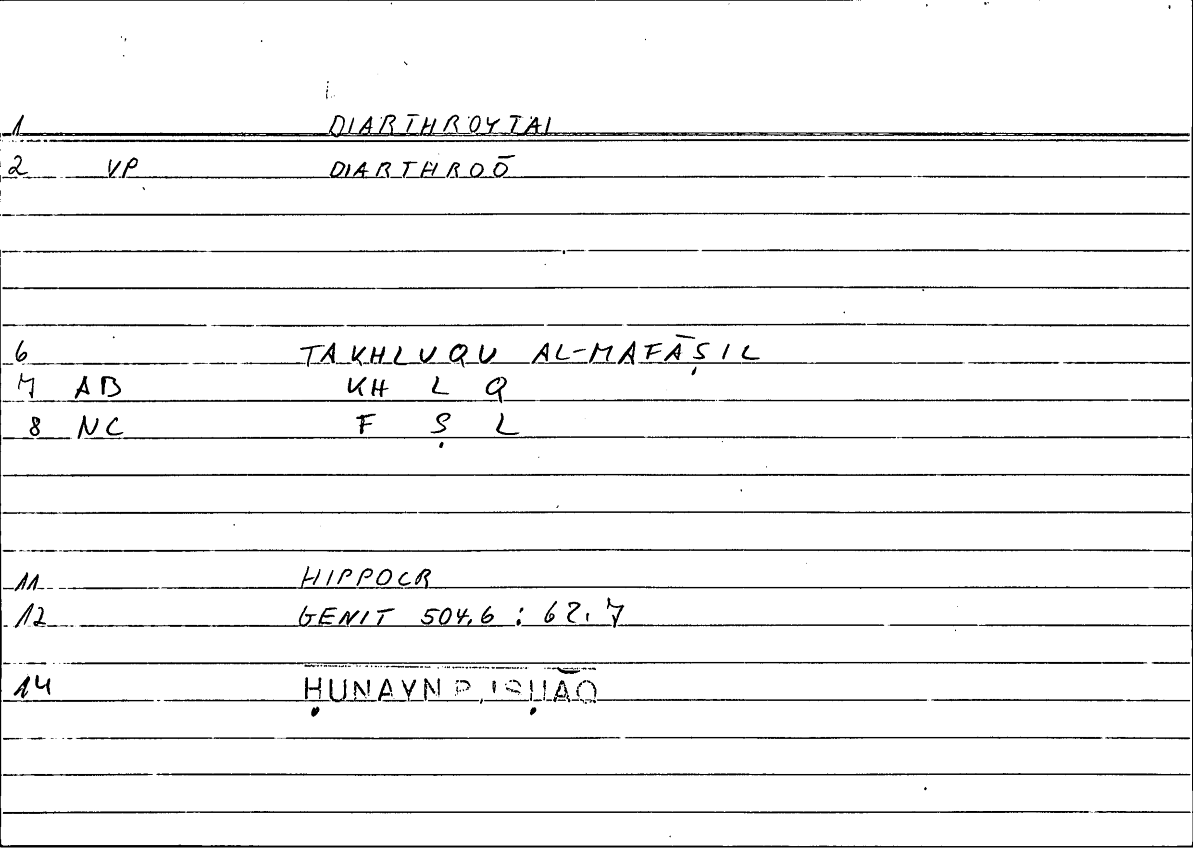 1 DIARTHROYTAI
2 VP DIARTHROŌ
6 TAKHLUQU AL-MAFĀṢIL
7 AB KH L Q
8 NC F Ṣ L
11 HIPPOCR
12 GENIT 504.6 : 62.7
14 ḤUNAYN B. ISḤĀQ